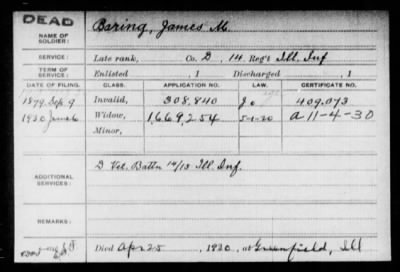 DEAD
NAME OF SOLDIER: Baring, James M.
SERVICE: Late rank, Co. D, 14 Reg't Ill. Inf
TERM OF SERVICE: Enlisted , 1 Discharged , 1
DATE OF FILING. CLASS. APPLICATION NO. LAW. CERTIFICATE NO.
1879 Sep. 9 Invalid, 308,840 409,073
1930 June 6 Widow, 1,669,254 5-1-20 A 11-4-30
Minor,
ADDITIONAL SERVICES: D Vet. Battn 14/15 Ill. Inf.
REMARKS:
Died Apr 25, 1930, at Greenfield, Ill